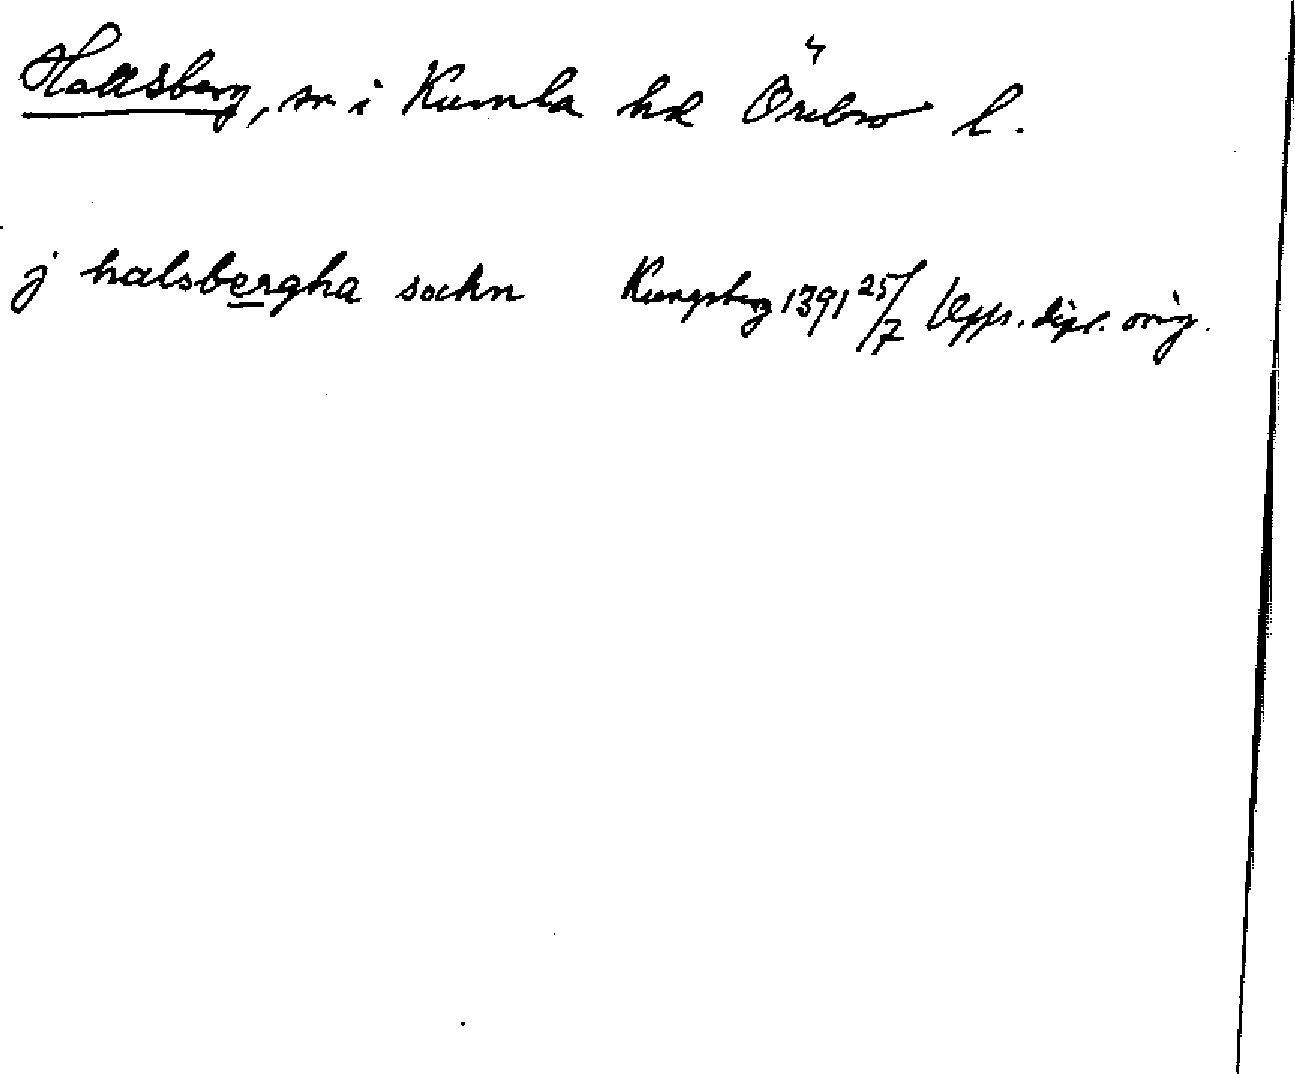 Hallsberg, sn i Kumla hd Örebro l.
j halsbergha sokn Kungsberg 1391 25/7 Upps. dipl. orig.